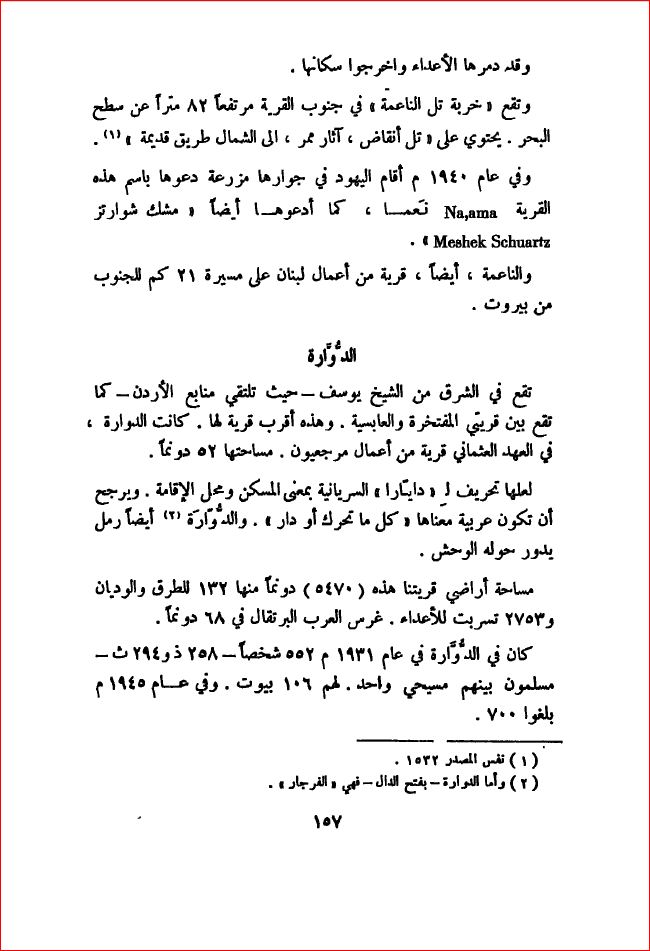 وقد دمرها الأعداء واخرجوا سكانها .
وتقع « خربة تل الناعمة » في جنوب القرية مرتفعاً ٨٢ متراً عن سطح
البحر . يحتوي على « تل أنقاض ، آثار ممر ، الى الشمال طريق قديمة » (١) .
وفي عام ١٩٤٠ م أقام اليهود في جوارها مزرعة دعوها باسم هذه
القرية Na,ama نَعمــا ، كما أدعوهــا أيضاً « مشك شوارتز
Meshek Schuartz » .
والناعمة ، أيضاً ، قرية من أعمال لبنان على مسيرة ٢١ كم للجنوب
من بيروت .
الدُّوَّارة
تقع في الشرق من الشيخ يوسف – حيث تلتقي منابع الأردن – كما
تقع بين قريتي المفتخرة والعابسية . وهذه أقرب قرية لها . كانت الدوارة ،
في العهد العثماني قرية من أعمال مرجعيون . مساحتها ٥٢ دونماً .
لعلها تحريف لـ « دايـّارا » السريانية بمعنى المسكن ومحل الإقامة . ويرجح
أن تكون عربية معناها « كل ما تحرك أو دار » . والدُّوّارَة (٢) أيضاً رمل
يدور حوله الوحش .
مساحة أراضي قريتنا هذه (٥٤٧٠) دونماً منها ١٣٢ للطرق والوديان
و٢٧٥٣ تسربت للأعداء . غرس العرب البرتقال في ٦٨ دونماً .
كان في الدُّوَّارة في عام ١٩٣١ م ٥٥٢ شخصاً – ٢٥٨ ذ و٢٩٤ ث –
مسلمون بينهم مسيحي واحد . لهم ١٠٦ بيوت . وفي عــام ١٩٤٥ م
بلغوا ٧٠٠ .
(١) نفس المصدر ١٥٣٢ .
(٢) وأما الدوارة – بفتح الدال – فهي « الفرجار » .
١٥٧